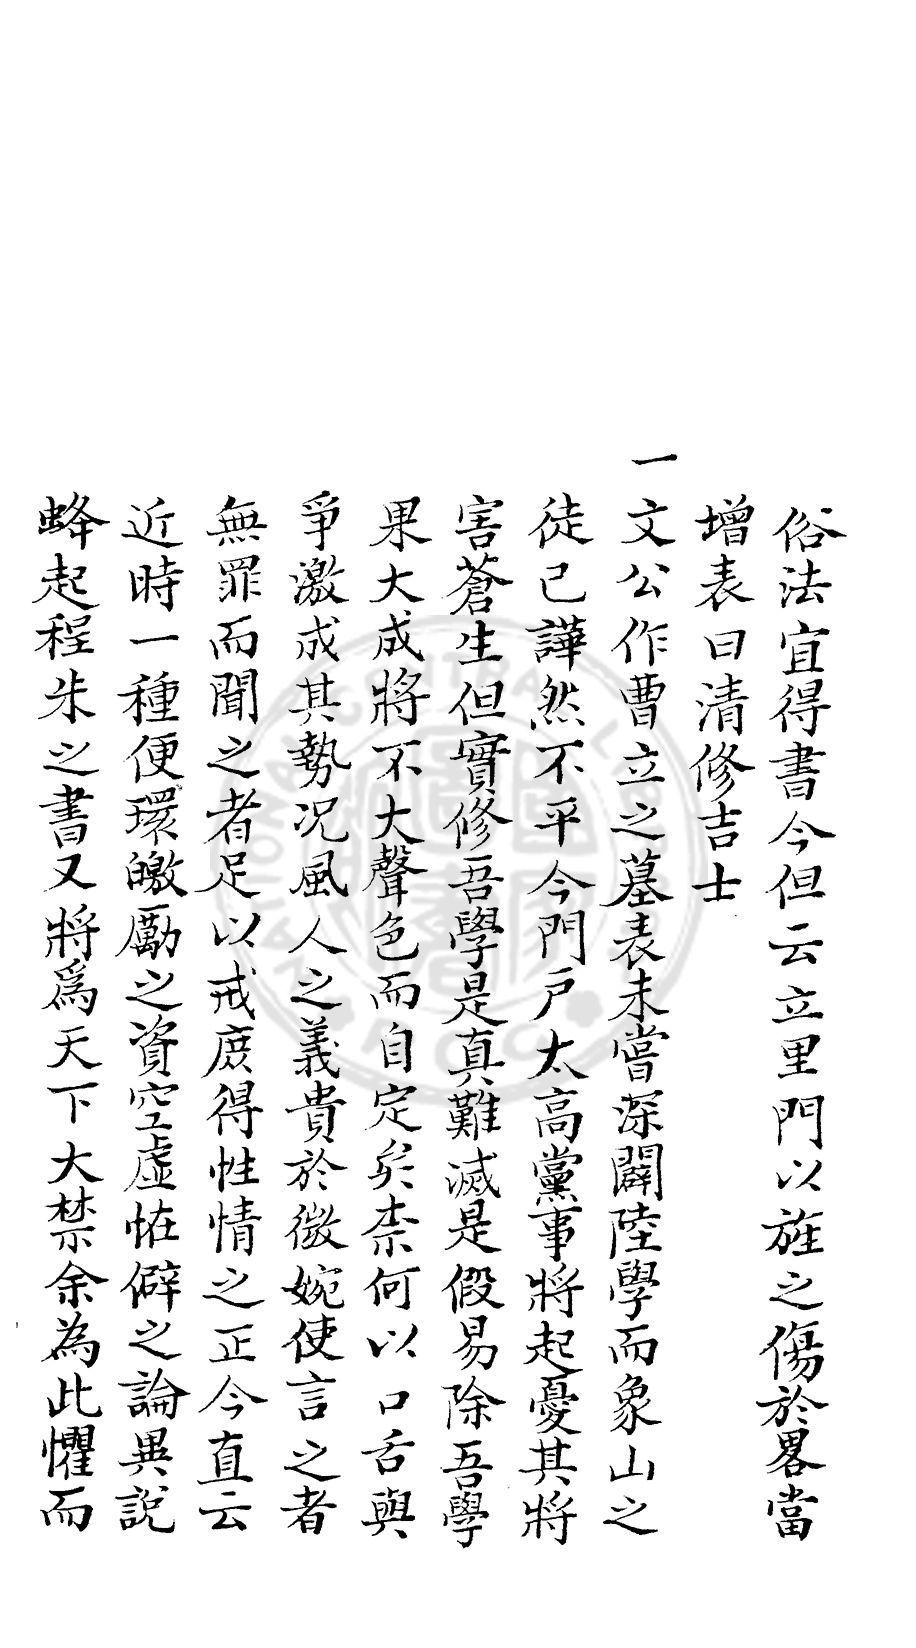 俗法宜得書今但云立里門以旌之傷於畧當
增表曰清修吉士
一文公作曹立之墓表未嘗深闢陸學而象山之
徒已譁然不平今門戶太高黨事將起憂其將
害蒼生但實修吾學是真難滅是假易除吾學
果大成將不大聲色而自定矣柰何以口舌與
爭激成其勢况風人之義貴於微婉使言之者
無罪而聞之者足以戒庻得性情之正今直云
近時一種便環皦勵之資空虛恠僻之論異說
蜂起程朱之書又將爲天下大禁余為此懼而
NATIONAL CENTRAL LIBRARY
ROC